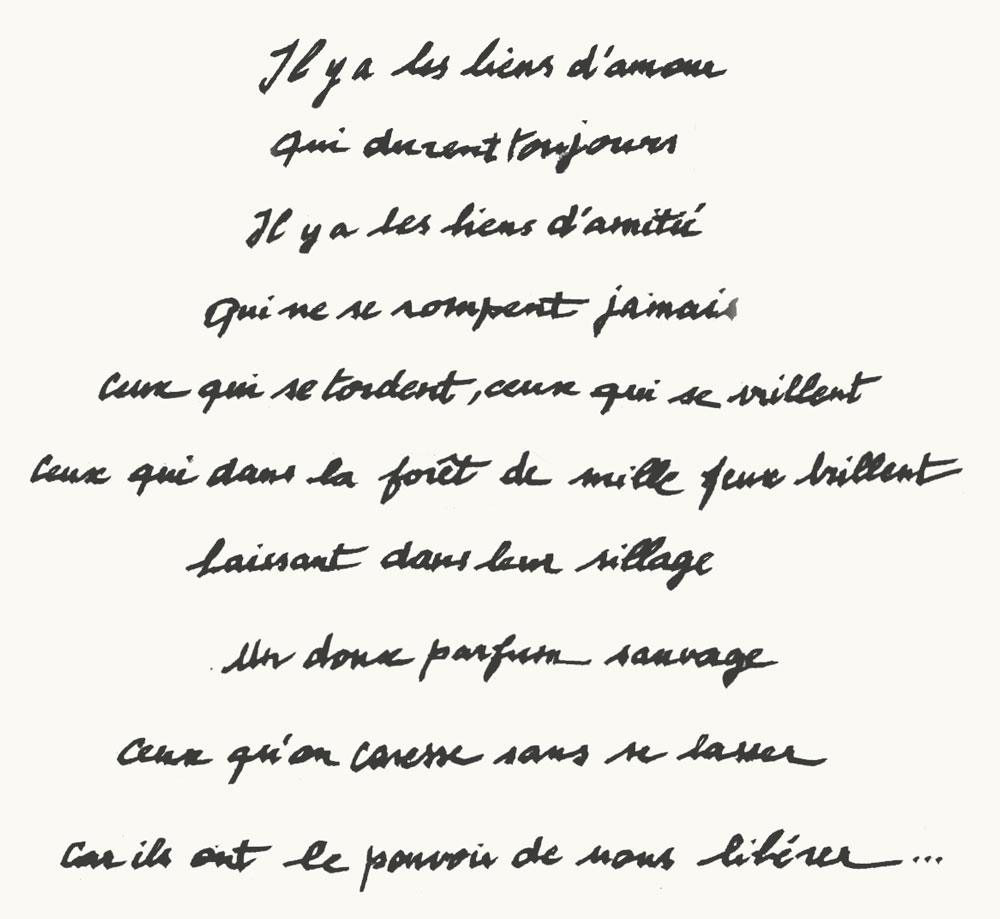 Il y a les liens d'amour
Qui durent toujours
Il y a les liens d'amitié
Qui ne se rompent jamais
Ceux qui se tordent, ceux qui se vrillent
Ceux qui dans la forêt de mille feux brillent
Laissant dans leur sillage
Un doux parfum sauvage
Ceux qu'on caresse sans se lasser
Car ils ont le pouvoir de nous libérer...